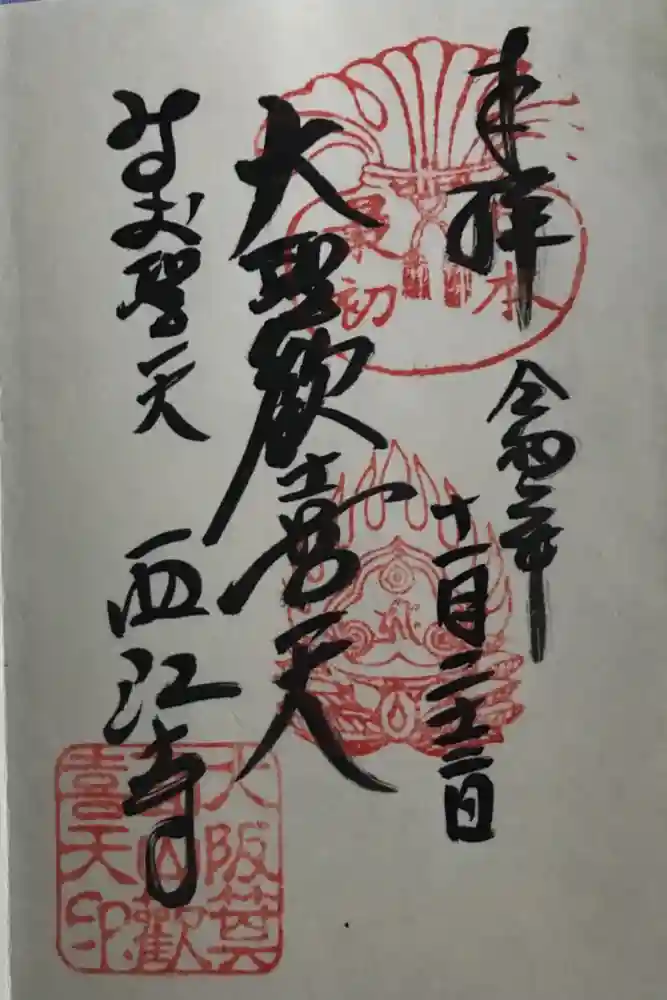 奉拝
令和
十一月二十
日
本
最初
大聖歓喜天
みのお聖天
西江寺
大阪箕
面山歡
喜天印